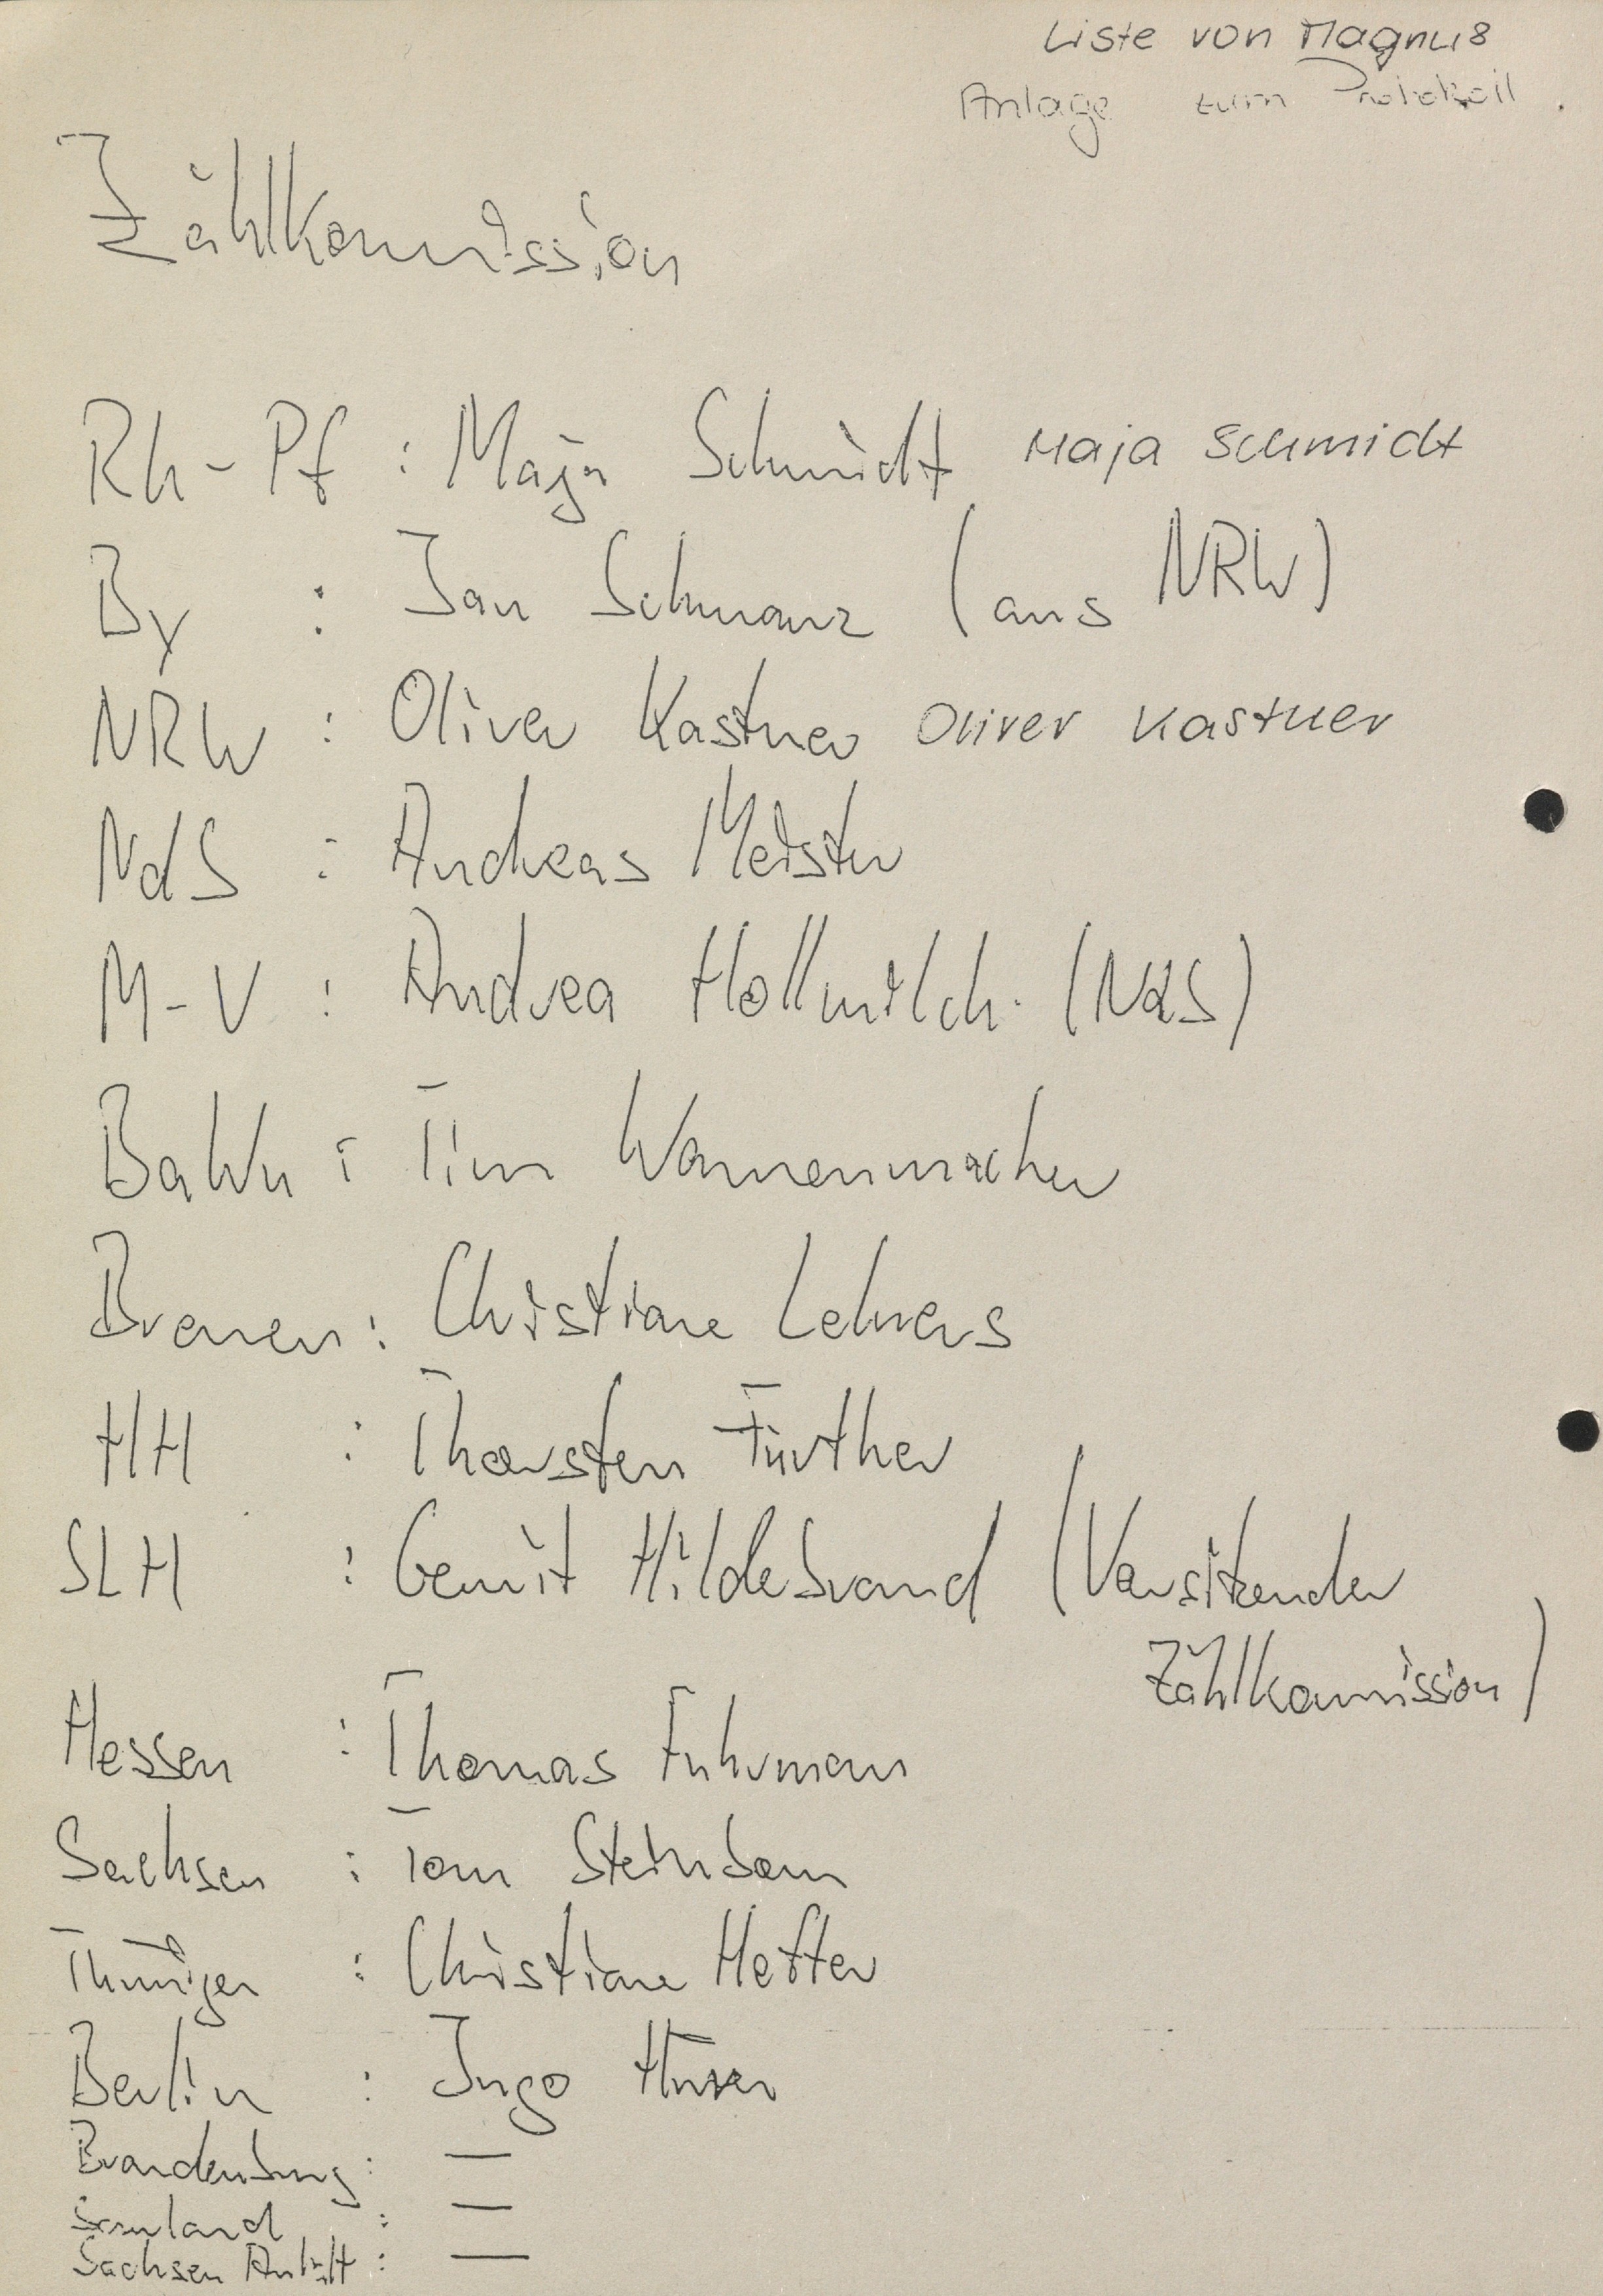 Liste von Magnus
Anlage zum Protokoll.
Zählkommission
Rh-Pf : Maja Schmidt Maja Schmidt
By : Jan Schwanz (aus NRW)
NRW : Oliver Kastner Oliver Kastner
NdS : Andreas Meister
M-V : Andrea Hollmilch (NdS)
BaWu : Tim Wannenmacher
Bremen : Christiane Lehners
HH : Thorsten Fürther
SLH : Gerrit Hildebrand (Vorsitzender
Zählkommission)
Hessen : Thomas Fuhrmann
Sachsen : Tom Steinborn
Thüringen : Christiane Hetter
Berlin : Ingo
Brandenburg : —
Saarland : —
Sachsen Anhalt : —